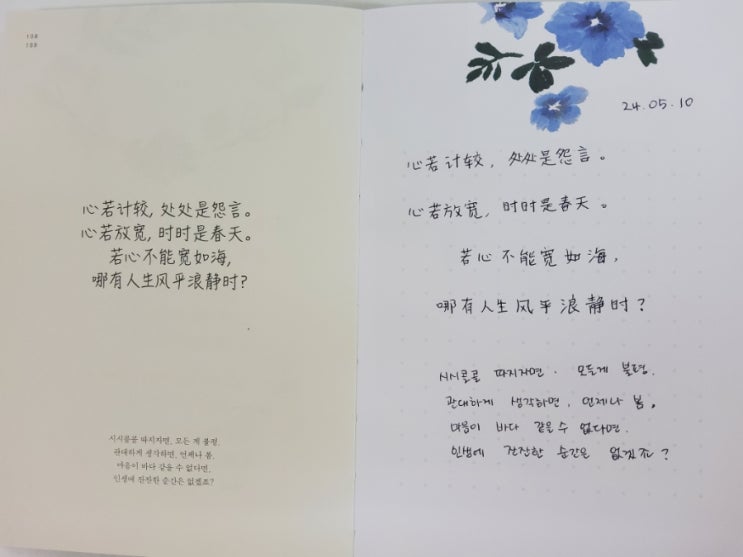 心若计较, 处处是怨言。
心若放宽, 时时是春天。
若心不能宽如海,
哪有人生风平浪静时?
시시콜콜 따지자면, 모든 게 불평,
관대하게 생각하면, 언제나 봄,
마음이 바다 같을 수 없다면,
인생에 잔잔한 순간은 없겠죠?
24.05.10
心若计较, 处处是怨言。
心若放宽, 时时是春天。
若心不能宽如海,
哪有人生风平浪静时?
시시콜콜 따지자면, 모든게 불평.
관대하게 생각하면, 언제나 봄.
마음이 바다 같을 수 없다면.
인생에 잔잔한 순간은 없겠죠?